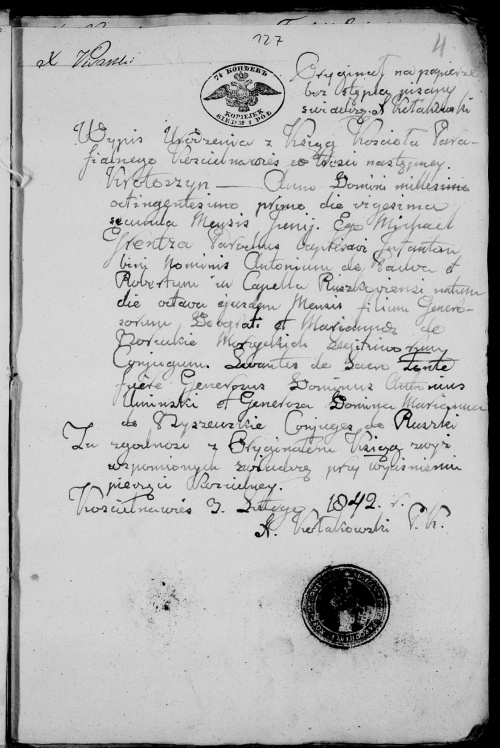 127
4.
7½ КОПѢЕКЪ
KOPIEJEK
SIEDM I PÓŁ
Oryginał na papierze
bez stępla pisany
świadczy A Kołakowski
Wypis Urodzenia z Księg Kościoła Para-
fialnego Kościelnawieś co do treści następnej
Krotoszyn — Anno Domini millesimo
octingentesimo primo die vigesima
secunda Mensis Junij. Ego Michael
Parochus baptisavi Infantem
bini Nominis Antonium de Padua et
Robertum in Capella Ruszkoviensi natum
die octava ejusdem Mensis filium Genero-
sorum Deogratii et Marianna de
Conjugum. Levantes de Sacro Fonte
fuere Generosus Dominus Antonius
Umiński et Generosa Domina Marianna
de Ryszewskie Conjuges de Ruszki
Za zgodność z Oryginałem Księg zwyż
wspomnionych świadczę przy wyciśnieniu
pieczęci Kościelney.
Kościelnawieś 3. Lutego 1842. r.
A. Kołakowski P. K.